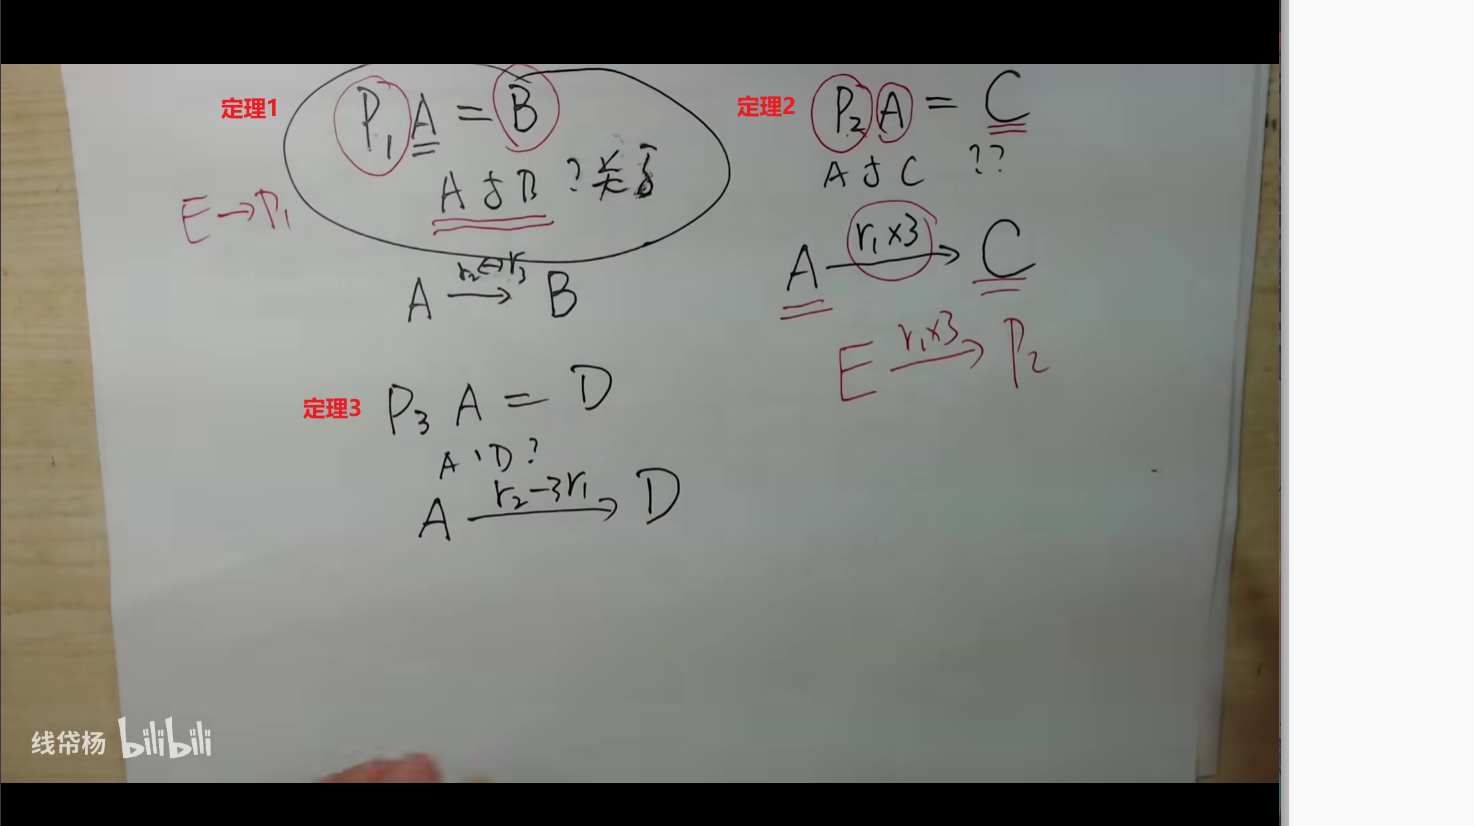 定理1 P₁A = B
A 与 B ? 关系
E → P₁
A r₂↔r₃ → B
定理2 P₂A = C
A 与 C ??
A r₁×3 → C
E r₁×3 → P₂
定理3 P₃ A = D
A、D?
A r₂-3r₁ → D
线帒杨 bilibili